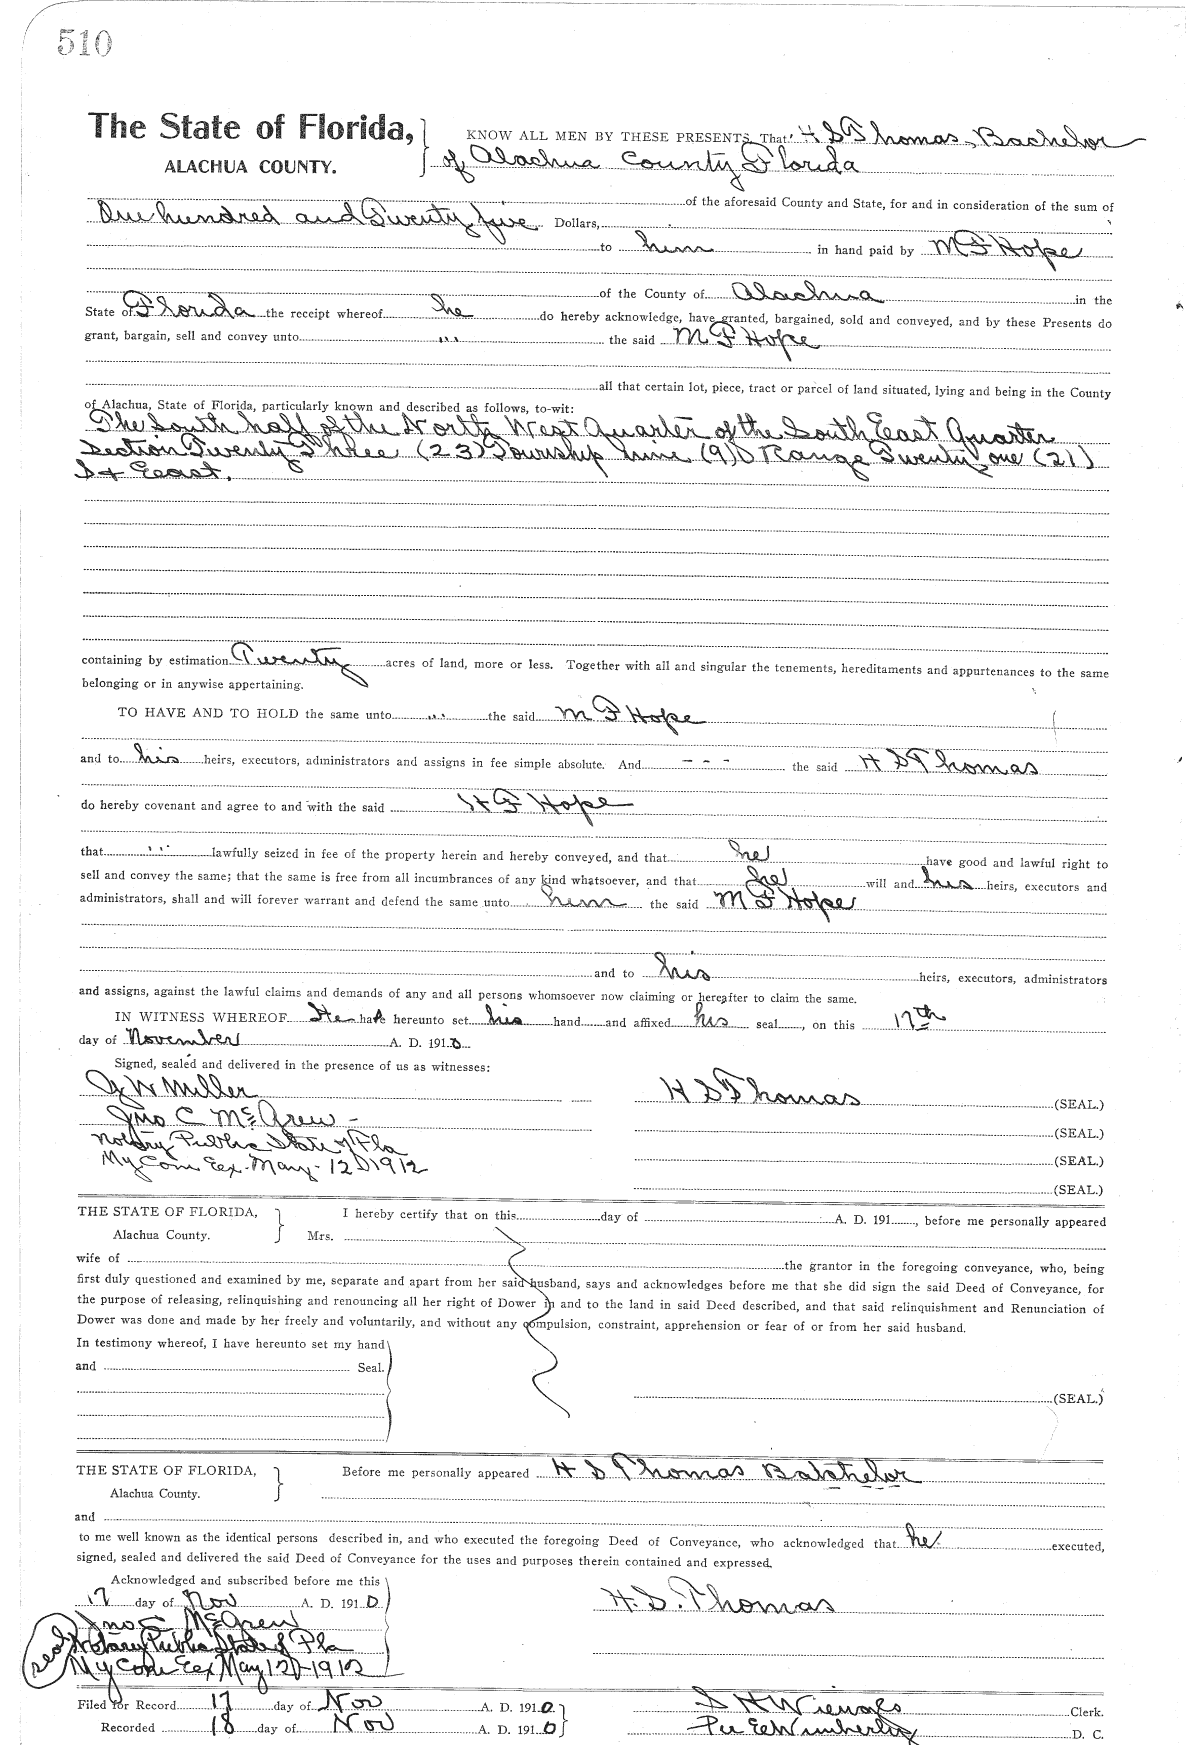 510
The State of Florida, KNOW ALL MEN BY THESE PRESENTS, That H S Thomas, Bachelor
ALACHUA COUNTY. of Alachua County Florida
of the aforesaid County and State, for and in consideration of the sum of
One hundred and Twenty five Dollars,
to him in hand paid by M F Hope
of the County of Alachua in the
State of Florida the receipt whereof he do hereby acknowledge, have granted, bargained, sold and conveyed, and by these Presents do
grant, bargain, sell and convey unto ... the said M F Hope
all that certain lot, piece, tract or parcel of land situated, lying and being in the County
of Alachua, State of Florida, particularly known and described as follows, to-wit:
The South half of the North West Quarter of the South East Quarter
Section Twenty Three (23) Township nine (9) Range Twenty one (21)
S & Eeast.
containing by estimation Twenty acres of land, more or less. Together with all and singular the tenements, hereditaments and appurtenances to the same
belonging or in anywise appertaining.
TO HAVE AND TO HOLD the same unto ... the said M F Hope
and to his heirs, executors, administrators and assigns in fee simple absolute. And - - - the said H S Thomas
do hereby covenant and agree to and with the said H F Hope
that ... lawfully seized in fee of the property herein and hereby conveyed, and that he have good and lawful right to
sell and convey the same; that the same is free from all incumbrances of any kind whatsoever, and that he will and his heirs, executors and
administrators, shall and will forever warrant and defend the same unto him the said M F Hope
and to his heirs, executors, administrators
and assigns, against the lawful claims and demands of any and all persons whomsoever now claiming or hereafter to claim the same.
IN WITNESS WHEREOF He has hereunto set his hand and affixed his seal, on this 17th
day of November A. D. 1910
Signed, sealed and delivered in the presence of us as witnesses:
W Miller H S Thomas (SEAL.)
Jno C McGrew - (SEAL.)
Notary Public State of Fla (SEAL.)
My Com Eex. May - 12 1912
(SEAL.)
THE STATE OF FLORIDA, I hereby certify that on this day of A. D. 191 , before me personally appeared
Alachua County. Mrs.
wife of the grantor in the foregoing conveyance, who, being
first duly questioned and examined by me, separate and apart from her said husband, says and acknowledges before me that she did sign the said Deed of Conveyance, for
the purpose of releasing, relinquishing and renouncing all her right of Dower in and to the land in said Deed described, and that said relinquishment and Renunciation of
Dower was done and made by her freely and voluntarily, and without any compulsion, constraint, apprehension or fear of or from her said husband.
In testimony whereof, I have hereunto set my hand
and Seal.
(SEAL.)
THE STATE OF FLORIDA, Before me personally appeared H S Thomas Batchelor
Alachua County.
and
to me well known as the identical persons described in, and who executed the foregoing Deed of Conveyance, who acknowledged that he executed,
signed, sealed and delivered the said Deed of Conveyance for the uses and purposes therein contained and expressed.
Acknowledged and subscribed before me this
17 day of Nov A. D. 1910 H. S. Thomas
Jno C McGrew
seal Notary Public State of Fla
My Com Eex May 12 - 1912
Filed for Record 17 day of Nov A. D. 1910 S H Wienges Clerk.
Recorded 18 day of Nov A. D. 1910 Per E Wimberly D. C.